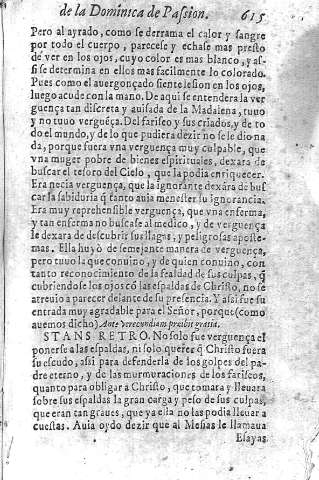 de la Dominica de Passion. 615
Pero al ayrado, como se derrama el calor y sangre
por todo el cuerpo, parecese y echase mas presto
de ver en los ojos, cuyo color es mas blanco, y as-
si se determina en ellos mas facilmente lo colorado.
Pues como el auergonçado siente lesion en los ojos,
luego acude con la mano. De aqui se entendera la ver
guença tan discreta y auisada de la Madalena, tuuo
y no tuuo verguẽça. Del fariseo y sus criados, y de to
do el mundo, y de lo que pudiera dezir no se le dio na
da, porque fuera vna verguença muy culpable, que
vna muger pobre de bienes espirituales, dexara de
buscar el tesoro del Cielo, que la podia enriquecer.
Era necia verguença, que la ignorante dexara de bus
car la sabiduria q̃ tanto auia menester su ignorancia.
Era muy reprehensible verguença, que vna enferma,
y tan enferma no buscase al medico, y de verguença
le dexara de descubrir sus llagas, y peligrosas aposte-
mas. Ella huyò de semejante manera de verguença,
pero tuuo la que conuino, y de quien conuino, con
tanto reconocimiento de la fealdad de sus culpas, q̃
cubriendose los ojos cõ las espaldas de Christo, no se
atreuio a parecer delante de su presencia. Y assi fue su
entrada muy agradable para el Señor, porque (como
auemos dicho) Ante verecundiam præibit gratia.
STANS RETRO. No solo fue verguença el
ponerse a las espaldas, ni solo querer q̃ Christo fuera
su escudo, assi para defenderla de los golpes del pa-
dre eterno, y de las murmuraciones de los fariseos,
quanto para obligar a Christo, que tomara y lleuara
sobre sus espaldas la gran carga y peso de sus culpas,
que eran tan graues, que ya ella no las podia lleuar a
cuestas. Auia oydo dezir que al Mesias le llamaua
Esayas